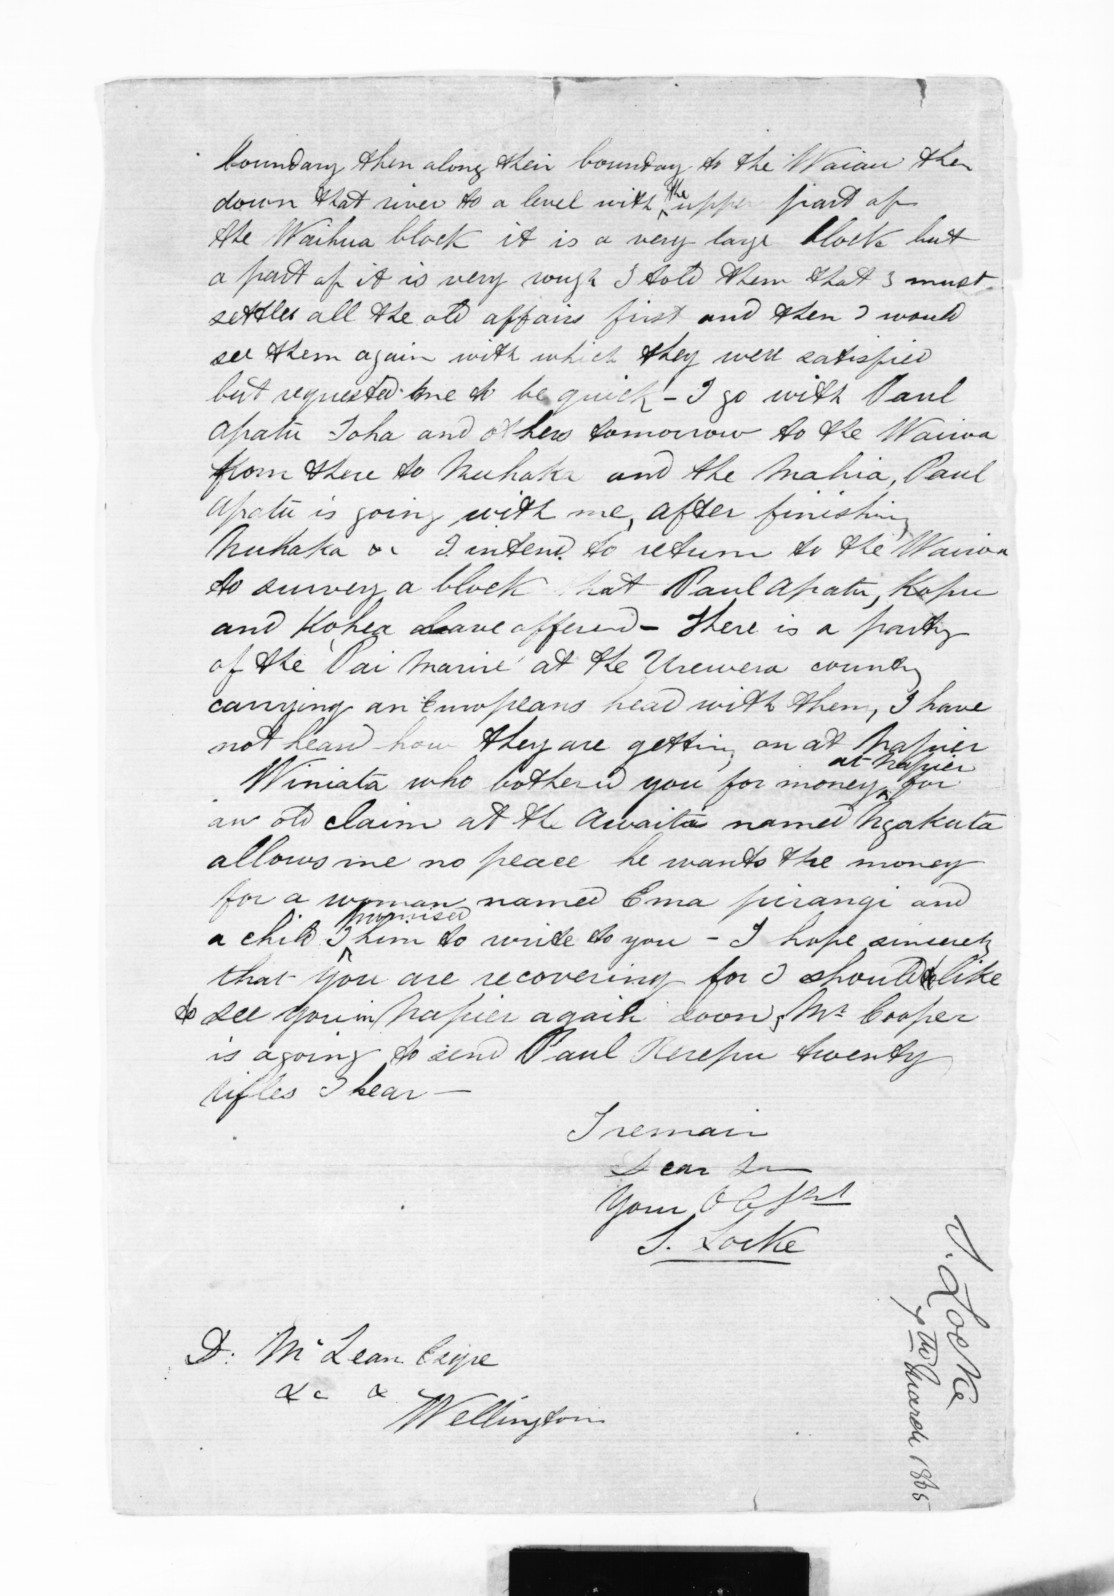 boundary then along their boundary to the Waiau then
down that river to a level with the upper part of
the Waihua block it is a very large block but
a part of it is very rough I told them that I must
settles all the old affairs first and then I would
see them again with which they were satisfied
but requested me to be quick - I go with Paul
Apatu Toha and others tomorrow to the Wairoa
from there to Nuhaka and the Mahia, Paul
Apatu is going with me, after finishing
Nuhaka &c I intend to return to the Wairoa
to survey a block that Paul Apatu, Kopu
and Kohea have offered - There is a party
of the 'Pai Marire' at the Urewera country
carrying an Europeans head with them, I have
not heard how they are getting on at Napier
Winiata who bothered you for money at Napier for
an old claim at the Awaita named Ngakuta
allows me no peace he wants the money
for a woman named Ema pirangi and
a child I promised him to write to you - I hope sincerely
that you are recovering for I should like
to see you in Napier again soon, Mr Cooper
is agoing to send Paul Rerepu twenty
rifles I hear -
I remain
Dear Sir
Your Obt Svt
S. Locke
D. McLean Esqre
&c &
Wellington
S. Locke
7th March 1865